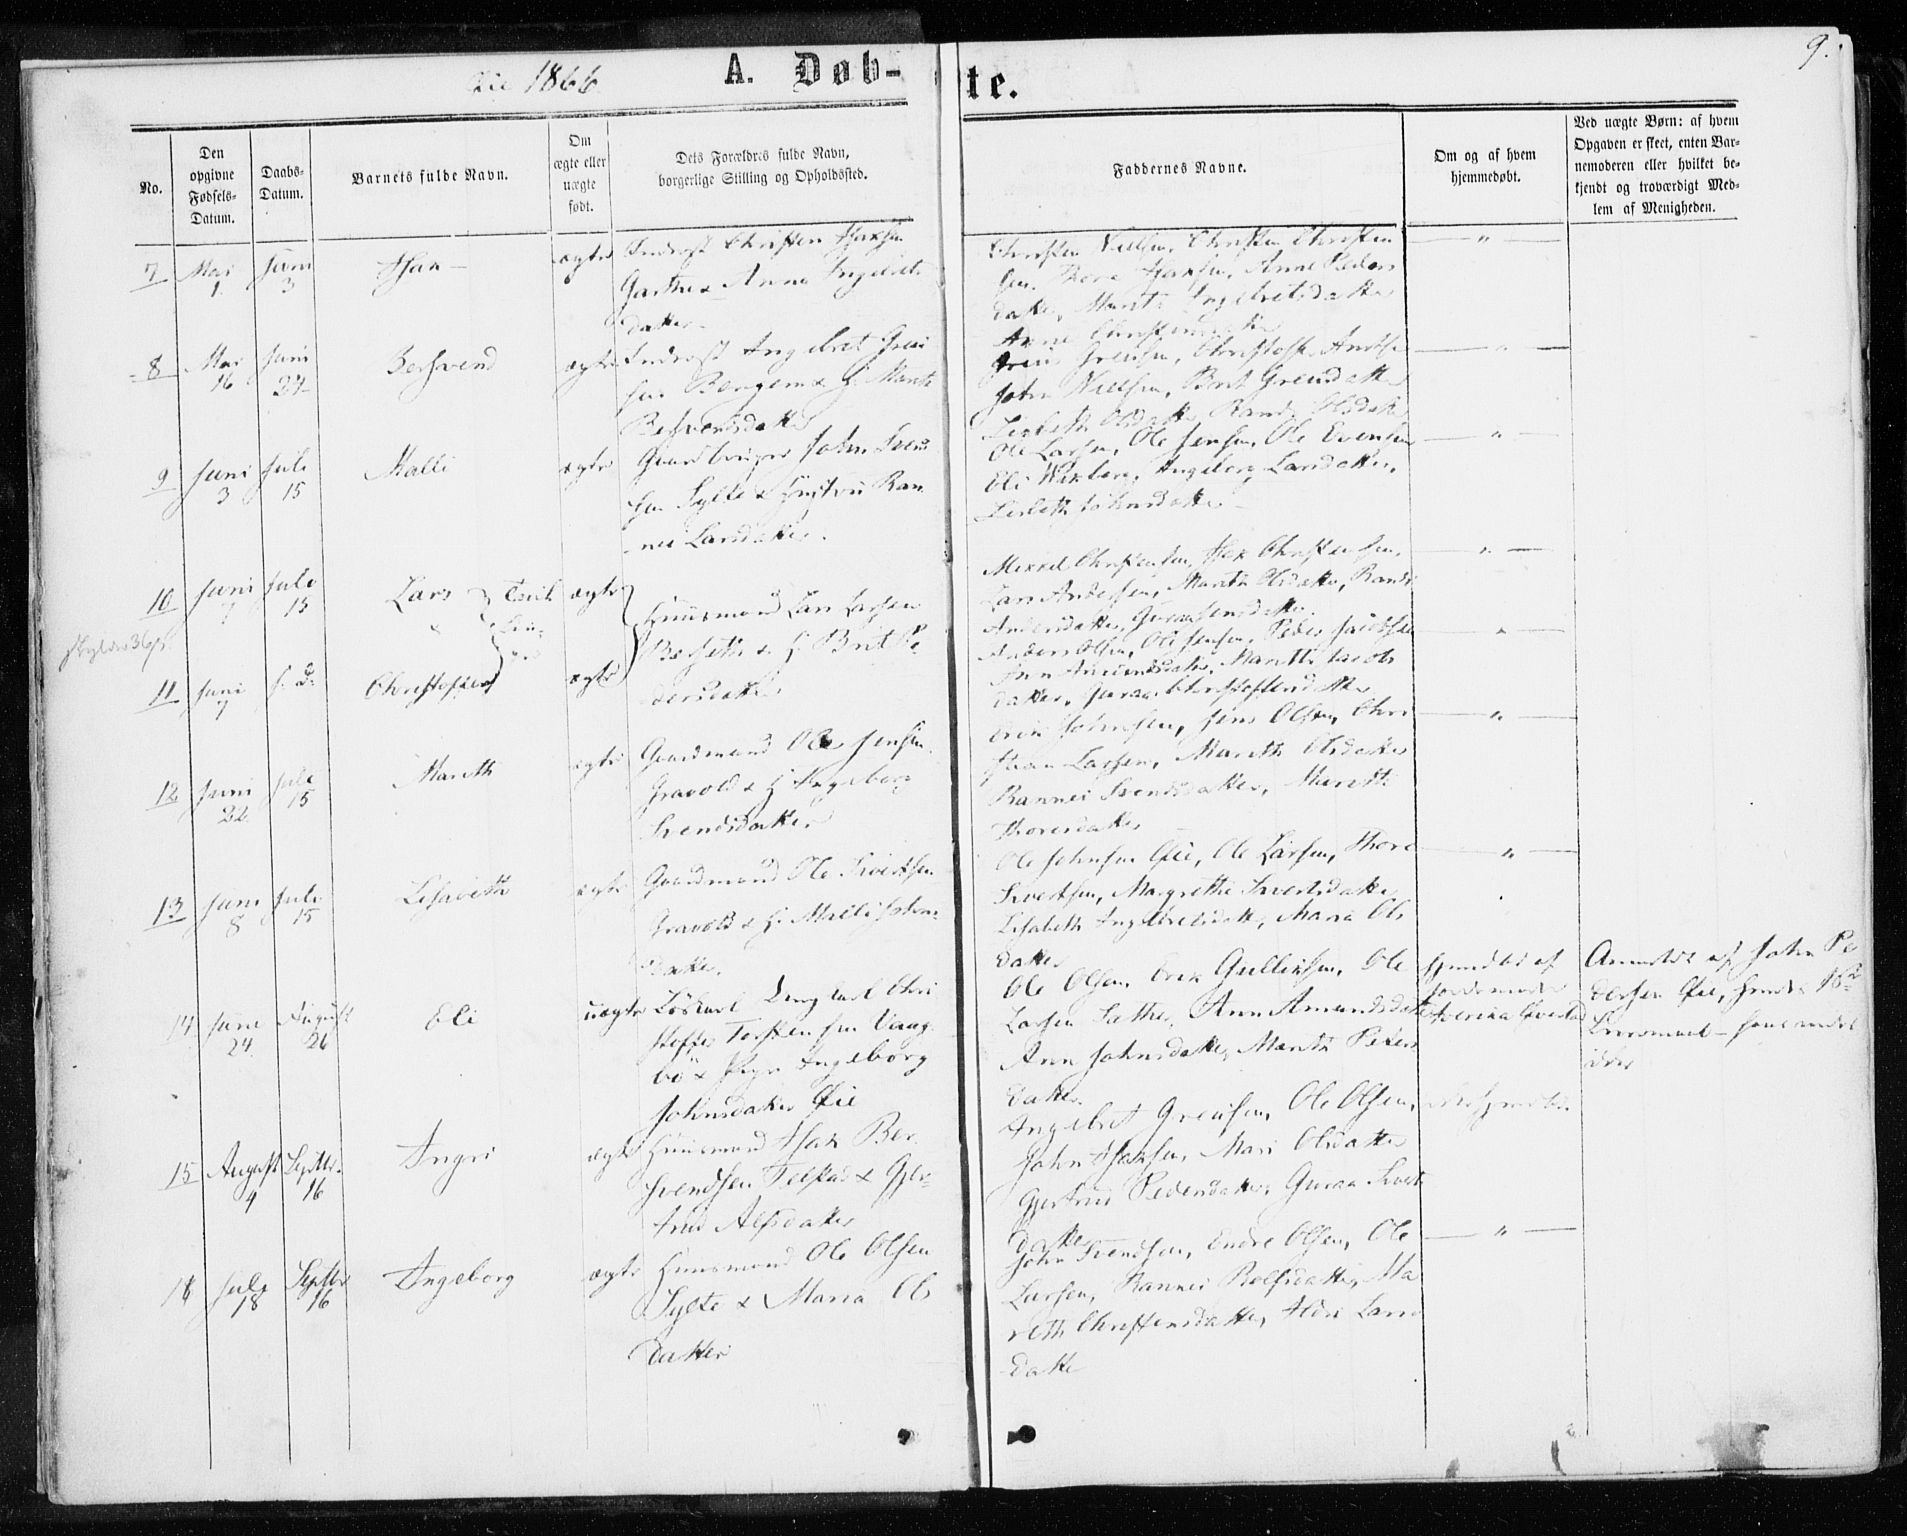 Øie 1866
A. Døb-
te.
9.
No.
Den
opgivne
Fødsels-
Datum.
Daabs-
Datum.
Barnets fulde Navn.
Om
ægte eller
uægte
født.
Dets Forældres fulde Navn,
borgerlige Stilling og Opholdssted.
Faddernes Navne.
Om og af hvem
hjemmedøbt.
Ved uægte Børn: af hvem
Opgaven er skeet, enten Bar-
nemoderen eller hvilket be-
kjendt og troværdigt Med-
lem af Menigheden.
7 Mai 1 Juni 3
Isak
ægte
Inderst Christen Isaksen
& Anne Ingebrets
datter
Christen Nielsen, Christen Christen
sen, Thore Isaksen, Anne Peders
datter, Marit Ingebretsdatter
Anne
— " —
8 Mai 16 Juni 24
Bersvend
ægte
Inderst Ingebret Greii
sen Bergem & H. Marith
Bersvendsdatter
Greiis Greiisen, Christoffer
John Nielsen, Berit Greiisdatter
Lisbeth Olsdatter, Randi Olsdatter
— " —
9 Juni 3 Juli 15
Malli
ægte
Gaardbruger John Svend
sen Sylte & Hustru Ran
nei Larsdatter.
Ole Larsen, Ole Jensen, Ole Evensen
Eli Ingeborg Larsdatter,
Lisbeth Johnsdatter
— " —
10 Juni 7 Juli 15
Lars
Tvil
lin-
ger
ægte
Huusmand Lars Larsen
& H. Berit Pe
dersdatter
Mikkel Christensen, Isak Christensen,
Lars Andersen, Marith Olsdatter, Randi
Andersdatter, Guraa Jensdatter.
— " —
11 Juni 7 s. D.
Christoffer
ægte
Anders Olsen, Ole Jensen, Peder Jacobsen
Ann Amundsdatter, Marith Jacobs
datter, Guraa Christoffersdatter
— " —
12 Juni 22 Juli 15
Marith
ægte
Gaardmand Ole Jensen
Gravold & H. Ingeborg
Svendsdatter
Erik Johnsen, Jens Olsen, Chri
stian Larsen, Marith Olsdatter
Rannei Svendsdatter, Marith
Thoresdatter
— " —
13 Juni 8 Juli 15
Lisabeth
ægte
Gaardmand Ole Sivertsen
Gravold & H. Malli John
datter.
Ole Johnsen Øie, Ole Larsen, Thore
Sivertsen, Margrethe Sivertsdatter
Lisabeth Ingebretsdatter, Maria Ols
datter
— " —
14 Juni 24 August 26
Eli
uægte
Løskarl Ungkarl Chri
stoffer Torstensen Vaag
bø & Pige Ingeborg
Johnsdatter Øie
Ole Olsen, Erik Gulliksen, Ole
Larsen Sæther, Ann Amundsdatter
Ann Johnsdatter, Marith Peders
datter.
Hjemdøbt af
Jordemoder
Anmeldt af John Pe
dersen Øie,
15 August 4 Septbr. 16
Ingri
ægte
Huusmand Isak Ber
svendsen Talstad & Gjer-
trud Alfsdatter
Ingebret Greiisen, Ole Olsen,
John Isaksen, Mari Olsdatter
Gjertrud Pedersdatter, Guraa Siverts
datter
16 Juli 18 Septbr. 16
Ingeborg
ægte
Huusmand Ole Olsen
Sylte & Maria Ols
datter
John Svendsen, Endre Olsen, Ole
Larsen, Rannei Rolfsdatter, Ma
rith Christensdatter, Lars
datter
— " —